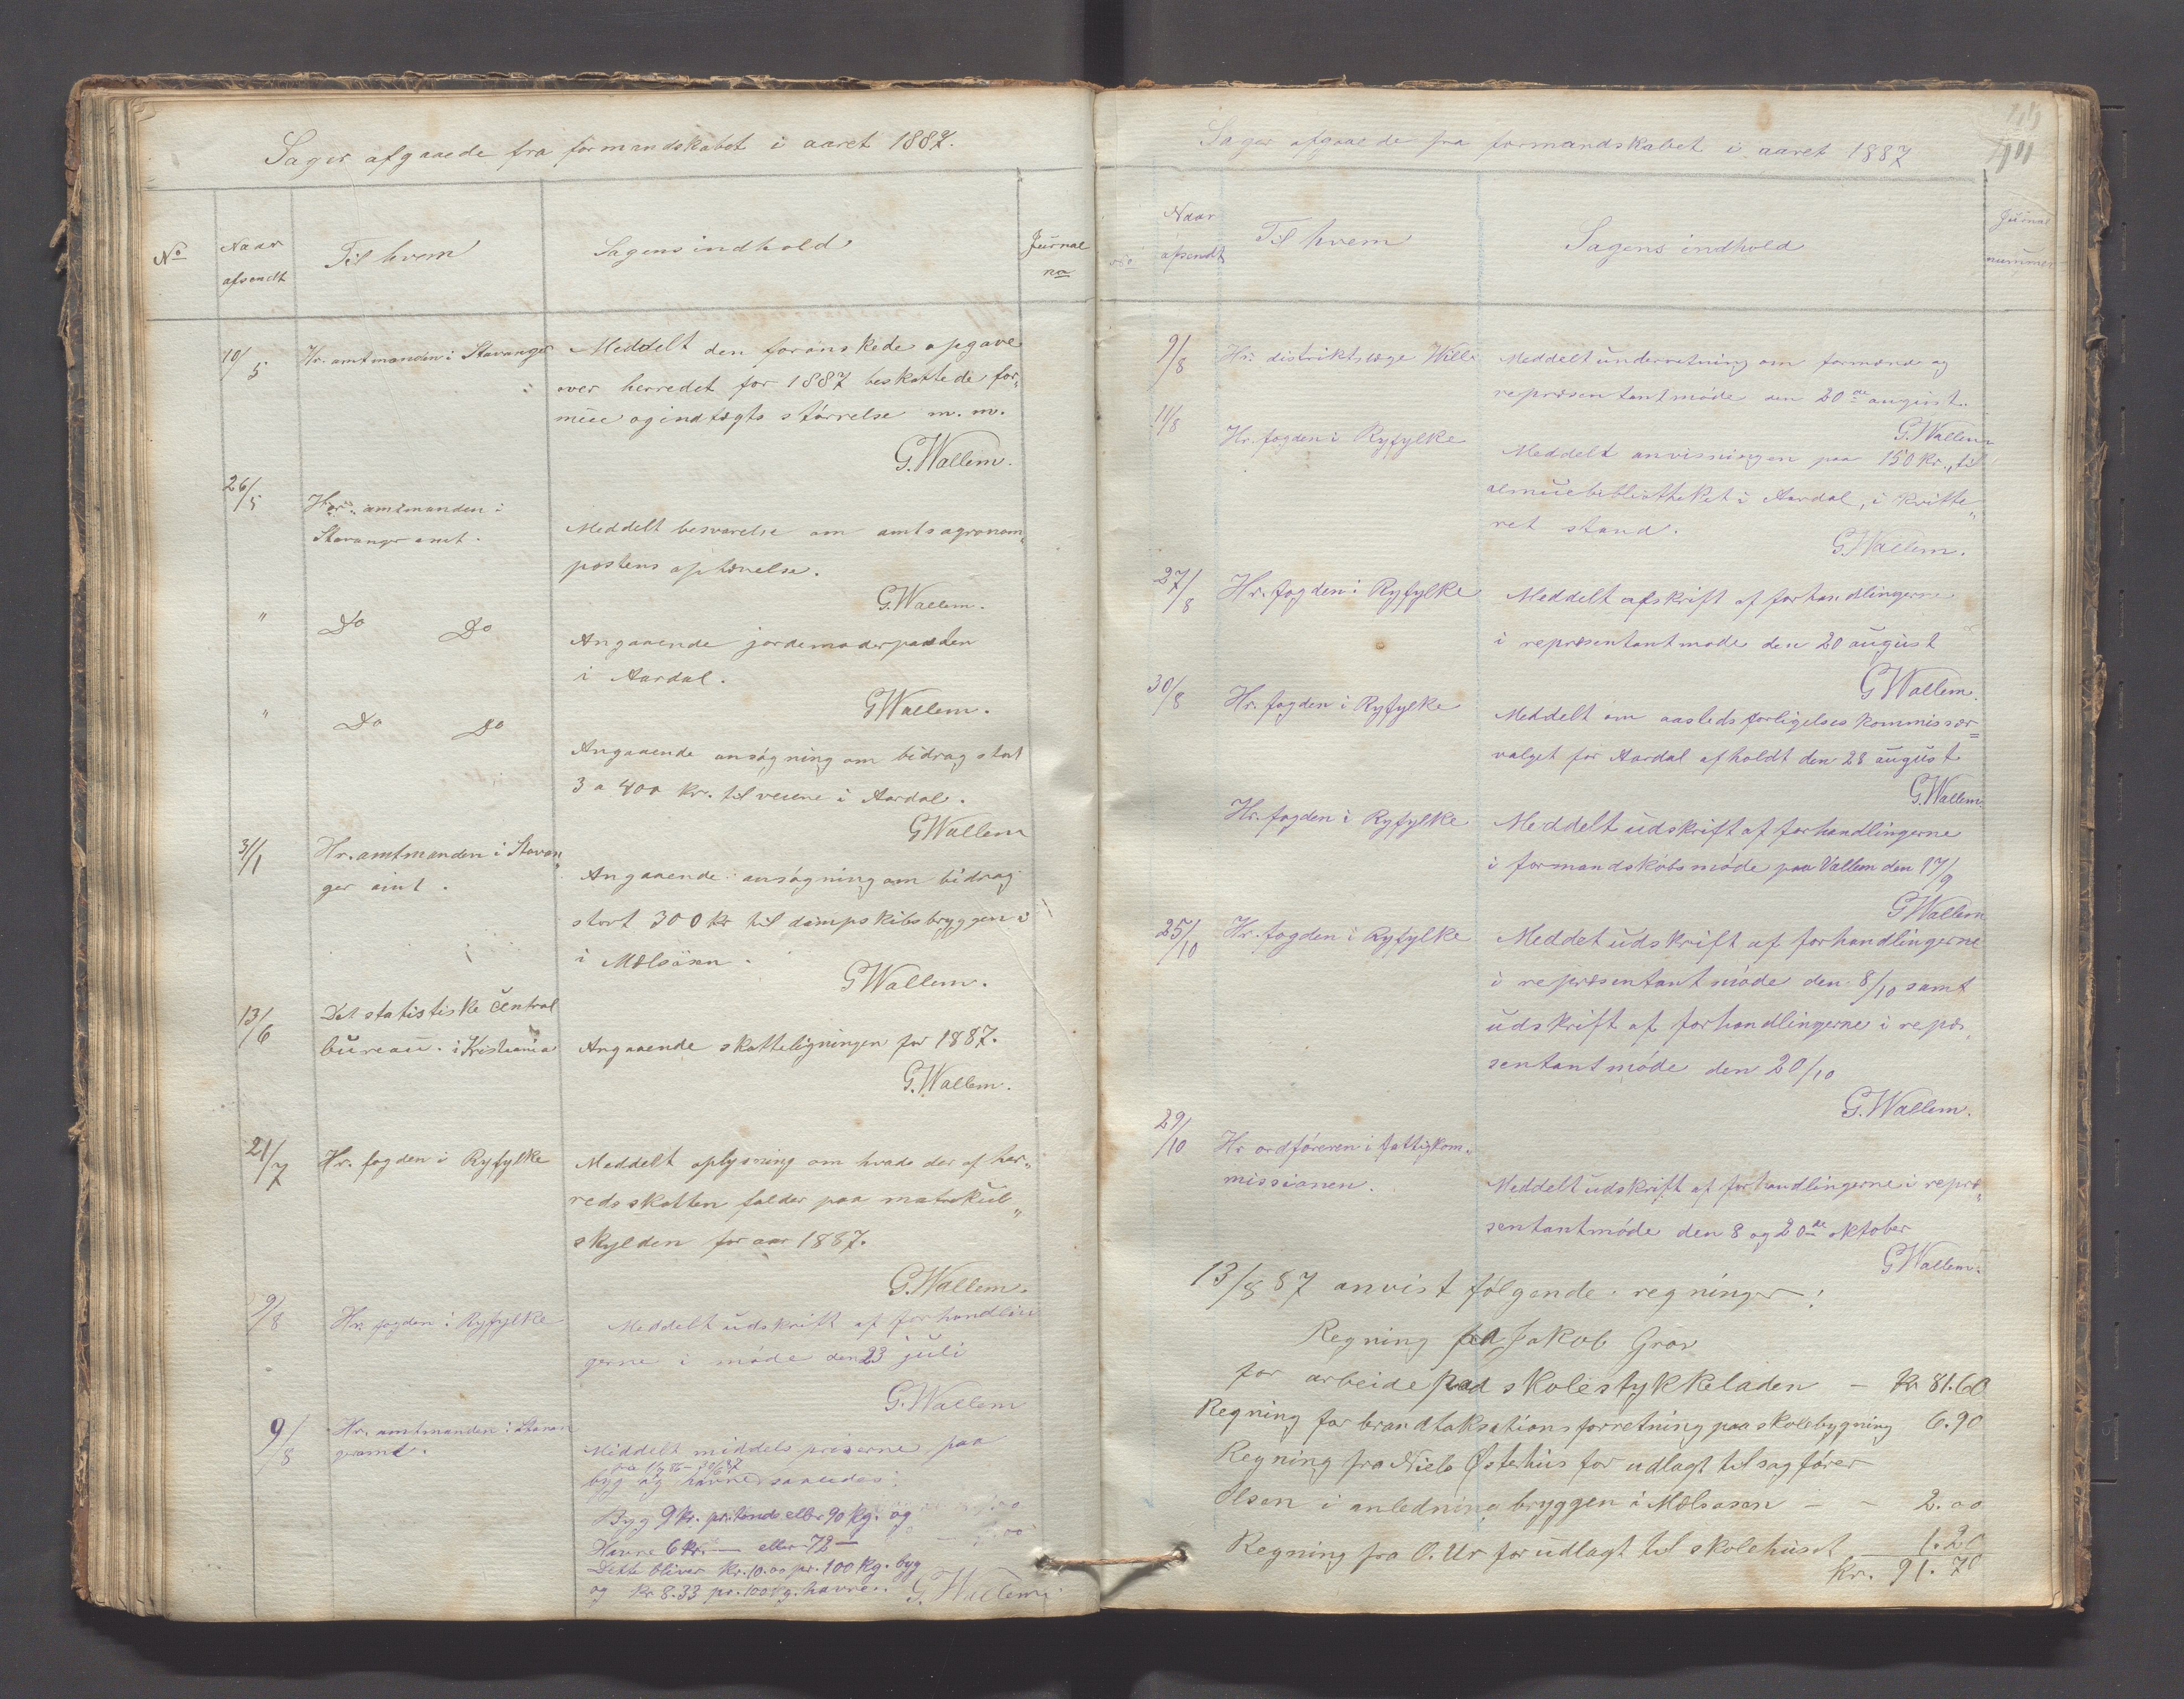 Sager afgaaede fra formandskabet i aaret 1887.
No
Naar
afsendt
Til hvem
Sagens indhold
Journal
no
10/5
Hr. amtmanden i Stavanger
Meddelt den forønskede opgave
over herredet for 1887 beskattede for„
mue og indtægts størrelse m. m.
G. Wallem.
26/5
Herr amtmanden i
Stavanger amt.
Meddelt besvarelse om amtsagronom„
postens ophævelse.
G. Wallem.
" Do Do
Angaaende jordemoderposten
i Aardal.
G Wallem.
" Do Do
Angaaende ansøgning om bidrag stort
3 a 400 kr. til veiene i Aardal.
G Wallem
31/1
Hr. amtmanden i Stavan„
ger amt.
Angaaende ansøgning om bidrag
stort 300 kr til dampskibsbryggen i
i Mælsosen.
G Wallem.
13/6
Det statistiske Central
bureau i Kristiania
Angaaende skatteligningen for 1887.
G. Wallem.
21/7
Hr. fogden i Ryfylke
Meddelt oplysning om hvade der af her„
redsskatten falder paa matrikul„
skylden for aar 1887.
G. Wallem.
9/8
Hr. fogden i Ryfylke
Meddelt udskrift af forhandlin
gerne i møde den 23 juli
G. Wallem
9/8
Hr. amtmanden i Stavan
geramt.
Middelt middels priserne paa
byg og havre saaledes:
Byg 9 kr. pr. tønde eller 90 kg. og
Havre 6 kr. — eller 72 —
Dette bliver kr. 10.00 pr. 100 kg. byg
og kr 8.33 pr. 100 kg. havre.
G. Wallem.
Sager afgaaede fra formandskabet i aaret 1887
No
Naar
afsendt
Til hvem
Sagens indhold
Journal
nummer
9/8
Hr. distriktslæge Wille
Meddelt underretning om formænd og
repræsentantmøde den 20de august.
G. Wallem
11/8
Hr. fogden i Ryfylke
Meddelt anvisningen paa 150 kr., til
almuebibliotheket i Aardal, i kvitte„
ret stand.
G. Wallem.
27/8
Hr. fogden i Ryfylke
Meddelt afskrift af forhandlingerne
i repræsentantmøde den 20 august
G Wallem.
30/8
Hr. fogden i Ryfylke
Meddelt om aastedsforligelses kommissær=
valget for Aardal afholdt den 28 august
G. Wallem.
Hr. fogden i Ryfylke
Meddelt udskrift af forhandlingerne
i formandskabsmøde paa Vallem den 17/9
G Wallem
25/10
Hr. fogden i Ryfylke
Meddet udskrift af forhandlingerne
i repræsentantmøde den 8/10 samt
udskrift af forhandlingerne i repræ„
sentantmøde den 20/10
G. Wallem.
29/10
Hr ordføreren i fattigkom„
missionen.
Meddelt udskrift af forhandlingerne i repræ„
sentantmøde den 8 og 20de oktober
G Wallem.
13/8 87 anvist følgende regninger:
Regning fra Jakob Grov
for arbeide paa skolestykkeladen — kr 81.60
Regning for brandtaksationsforretning paa skolebygning 6.90
Regning fra Niels Østehus for udlagt til sagfører
Olsen i anledning bryggen i Mælsosen — — 2.00
Regning fra O. Ur for udlagt til skolehuset 1.20
kr. 91.70